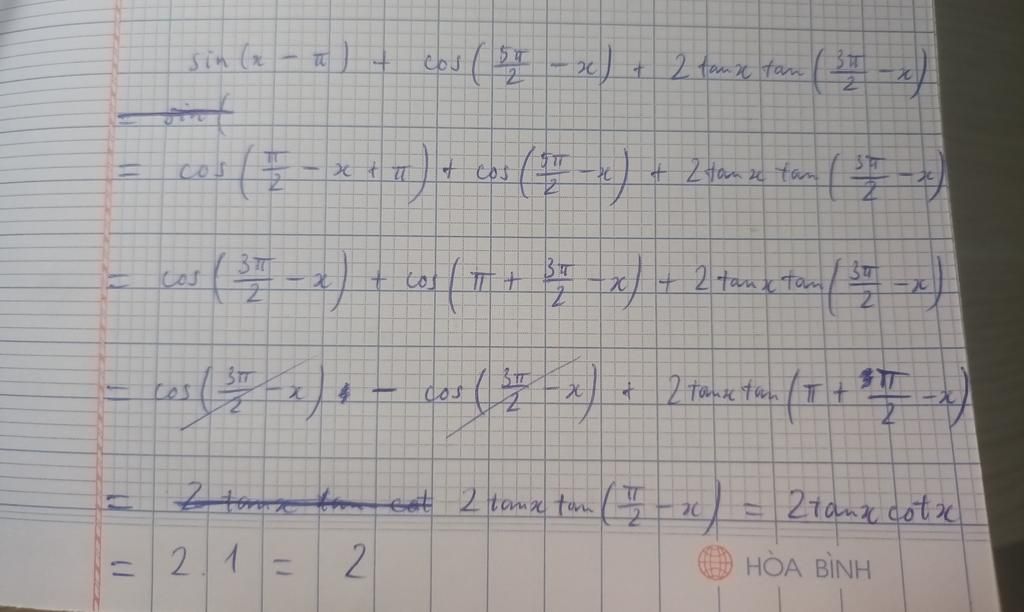 sin(x − π) + cos(5π/2 − x) + 2 tanx tan(3π/2 − x)
= sin(
= cos(π/2 − x + π) + cos(5π/2 − x) + 2 tanx tan(3π/2 − x)
= cos(3π/2 − x) + cos(π + 3π/2 − x) + 2 tanx tan(3π/2 − x)
= cos(3π/2 − x) − cos(3π/2 − x) + 2 tanx tan(π + π/2 − x)
= 2 tanx tan cot 2 tanx tan(π/2 − x) = 2 tanx cotx
= 2 . 1 = 2
HÒA BÌNH